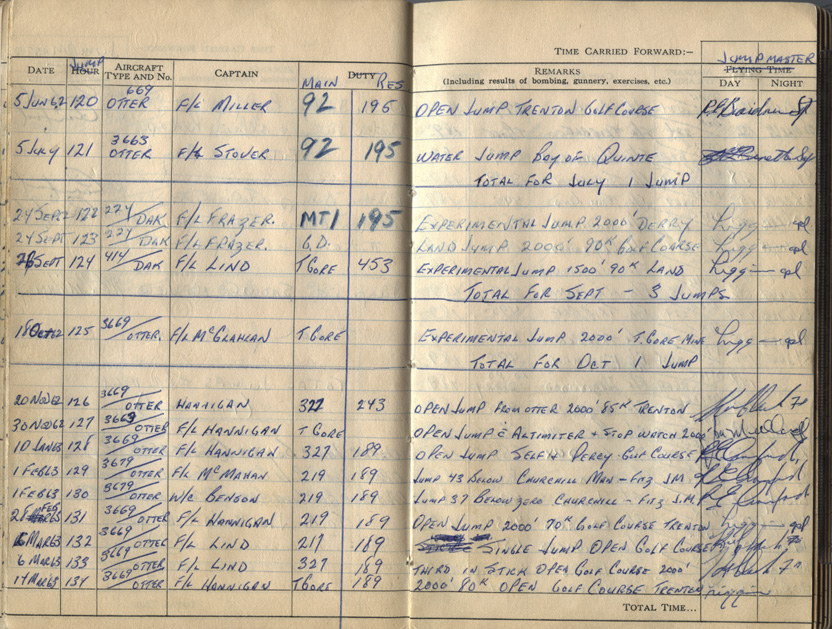 TIME CARRIED FORWARD:-
DATE JUMP HOUR AIRCRAFT TYPE AND No. CAPTAIN MAIN DUTY RES REMARKS (Including results of bombing, gunnery, exercises, etc.) JUMPMASTER FLYING TIME DAY NIGHT
5 JUN 62 120 669 OTTER F/L MILLER 92 195 OPEN JUMP TRENTON GOLF COURSE
5 JULY 121 3663 OTTER F/L STOVER 92 195 WATER JUMP BAY OF QUINTE
TOTAL FOR JULY 1 JUMP
24 SEPT 122 224/DAK F/L FRAZER. MT1 195 EXPERIMENTAL JUMP 2000' DERRY
24 SEPT 123 224/DAK F/L FRAZER. G.D. LAND JUMP 2000' 90K GOLF COURSE
SEPT 124 414/DAK F/L LIND T GORE 453 EXPERIMENTAL JUMP 1500' 90K LAND
TOTAL FOR SEPT - 3 JUMPS
18 OCT 62 125 3669/OTTER. F/L McGLAHLAN T GORE EXPERIMENTAL JUMP 2000' T. GORE MINE
TOTAL FOR OCT 1 JUMP
20 NOV 62 126 3669/OTTER HANNIGAN 327 243 OPEN JUMP FROM OTTER 2000' 85K TRENTON
30 NOV 62 127 3669/OTTER F/L HANNIGAN T GORE OPEN JUMP C ALTIMITER + STOP WATCH 2000'
10 JAN 63 128 3669/OTTER F/L HANNIGAN 327 189 OPEN JUMP SELF + PERCY GOLF COURSE
1 FEB 63 129 3679/OTTER F/L McMAHAN 219 189 JUMP 43 BELOW CHURCHILL MAN - FITZ J.M.
1 FEB 63 130 3679/OTTER W/C BENSON 219 189 JUMP 37 BELOW ZERO CHURCHILL - FITZ J.M.
28 FEB 63 131 3669/OTTER F/L HANNIGAN 219 189 OPEN JUMP 2000' 70K GOLF COURSE TRENTON
6 MAR 63 132 3669/OTTER F/L LIND 217 189 SINGLE JUMP OPEN GOLF COURSE
6 MAR 63 133 3669/OTTER F/L LIND 327 189 THIRD IN STICK OPEN GOLF COURSE 2000'
14 MAR 63 134 3669/OTTER F/L HANNIGAN T GORE 189 2000' 80K OPEN GOLF COURSE TRENTON
TOTAL TIME...